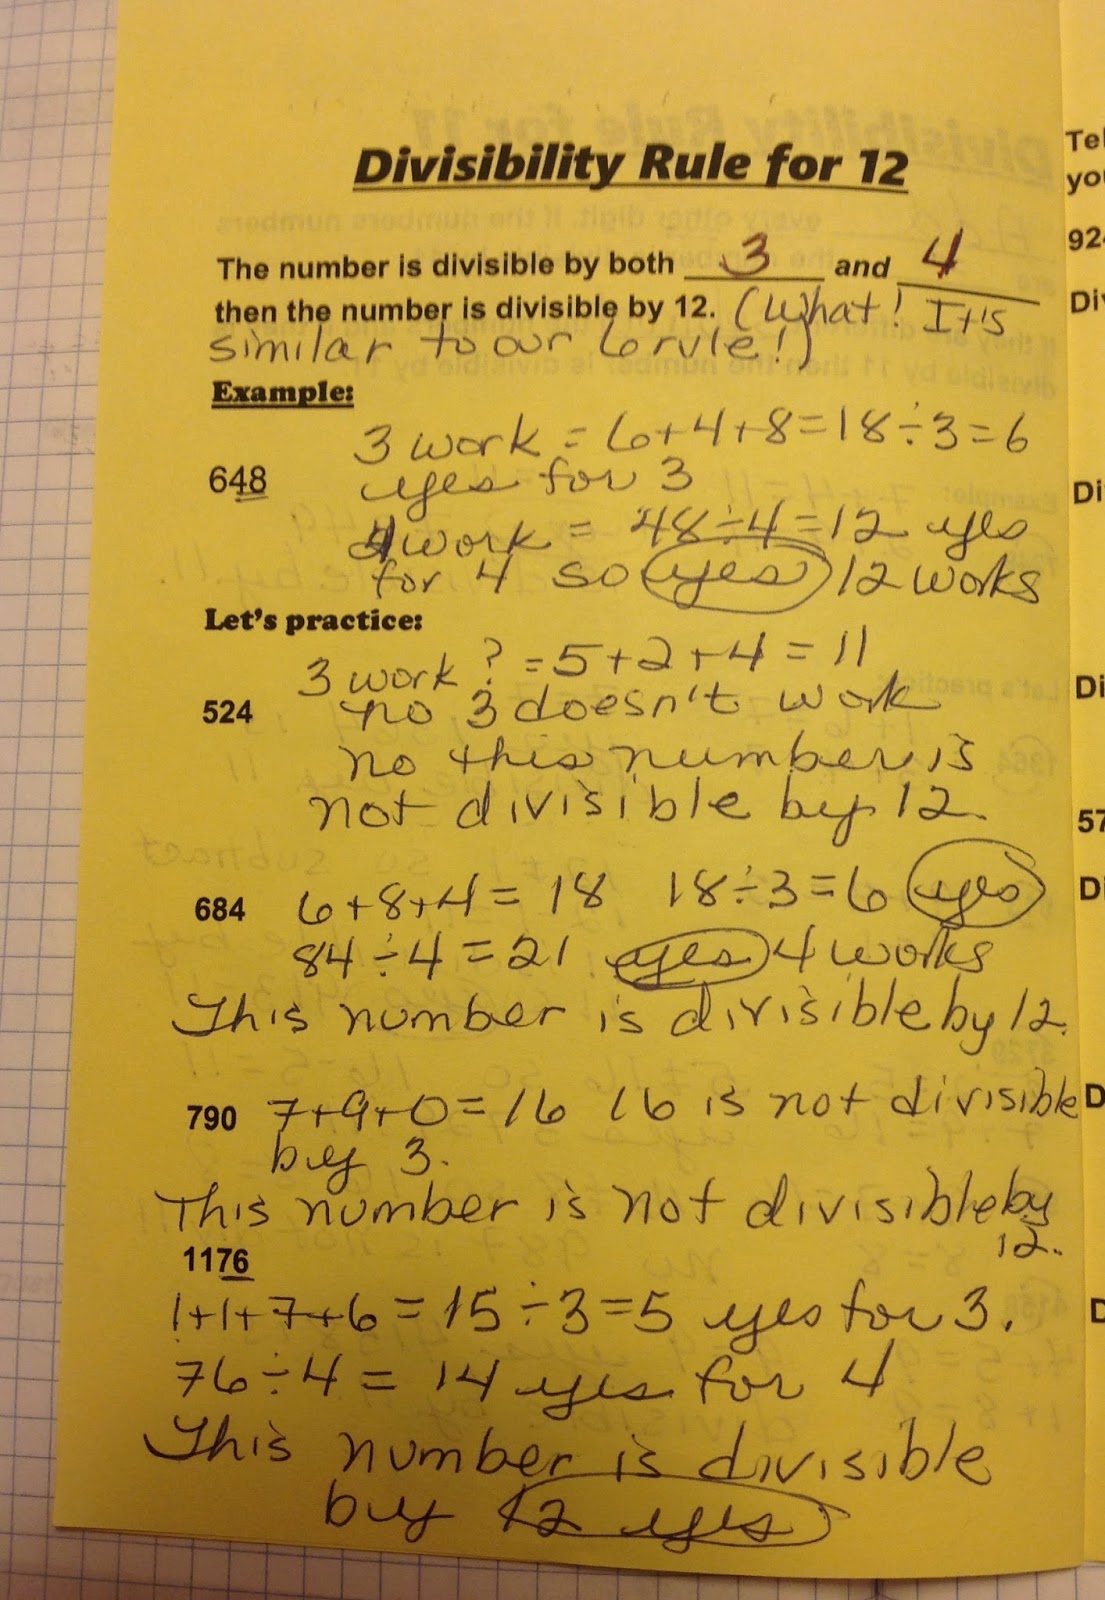 Divisibility Rule for 12
The number is divisible by both 3 and 4
then the number is divisible by 12. (What! It's
similar to our 6 rule!)
Example:
3 work = 6+4+8=18÷3=6
648 yes for 3
4 work = 48÷4=12 yes
for 4 so yes 12 works
Let's practice:
3 work? =5+2+4=11
524 no 3 doesn't work
no this number is
not divisible by 12.
684 6+8+4=18 18÷3=6 yes
84÷4=21 yes 4 works
This number is divisible by 12.
790 7+9+0=16 16 is not divisible
by 3.
This number is not divisible by
12.
1176
1+1+7+6=15÷3=5 yes for 3.
76÷4=14 yes for 4
This number is divisible
by 12 yes
Tel
you
924
Div
Di
Di
57
Di
D
D